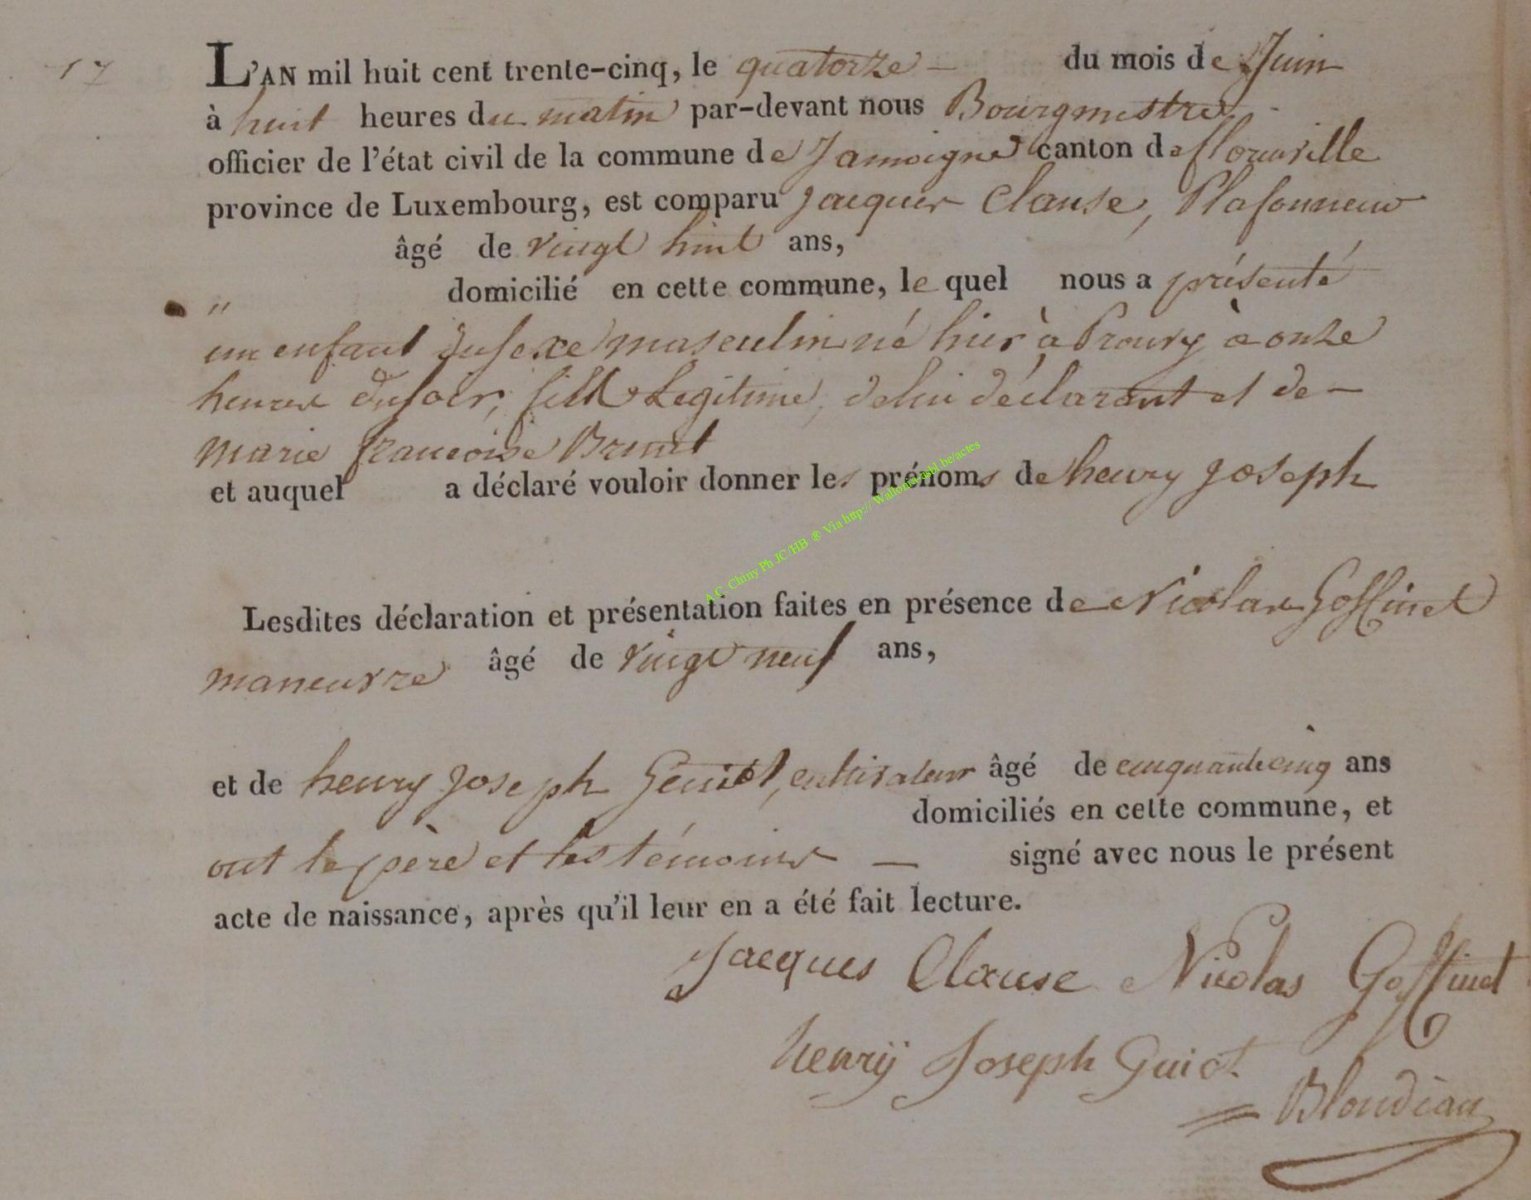 17
L'AN mil huit cent trente-cinq, le quatorze – du mois de Juin
à huit heures du matin par-devant nous Bourgmestre
officier de l'état civil de la commune de Jamoigne canton de florenville
province de Luxembourg, est comparu Jacques Clause, Plafonneur
âgé de vingt huit ans,
domicilié en cette commune, lequel nous a présenté
un enfant du sexe masculin né hier à Prouvy à onze
heures du soir, fils Legitime, de lui déclarant et de –
marie francoise
et auquel a déclaré vouloir donner les prénoms de henry Joseph
A.C. Chiny Ph JC/HB ® Via http://
Lesdites déclaration et présentation faites en présence de Nicolas Goffinet
maneuvre âgé de vingt neuf ans,
et de henry Joseph Guiot, cultivateur âgé de cinquante cinq ans
domiciliés en cette commune, et
ont le père et les témoins – signé avec nous le présent
acte de naissance, après qu'il leur en a été fait lecture.
Jacques Clause Nicolas Goffinet
henrÿ Joseph Guiot
Blondiau